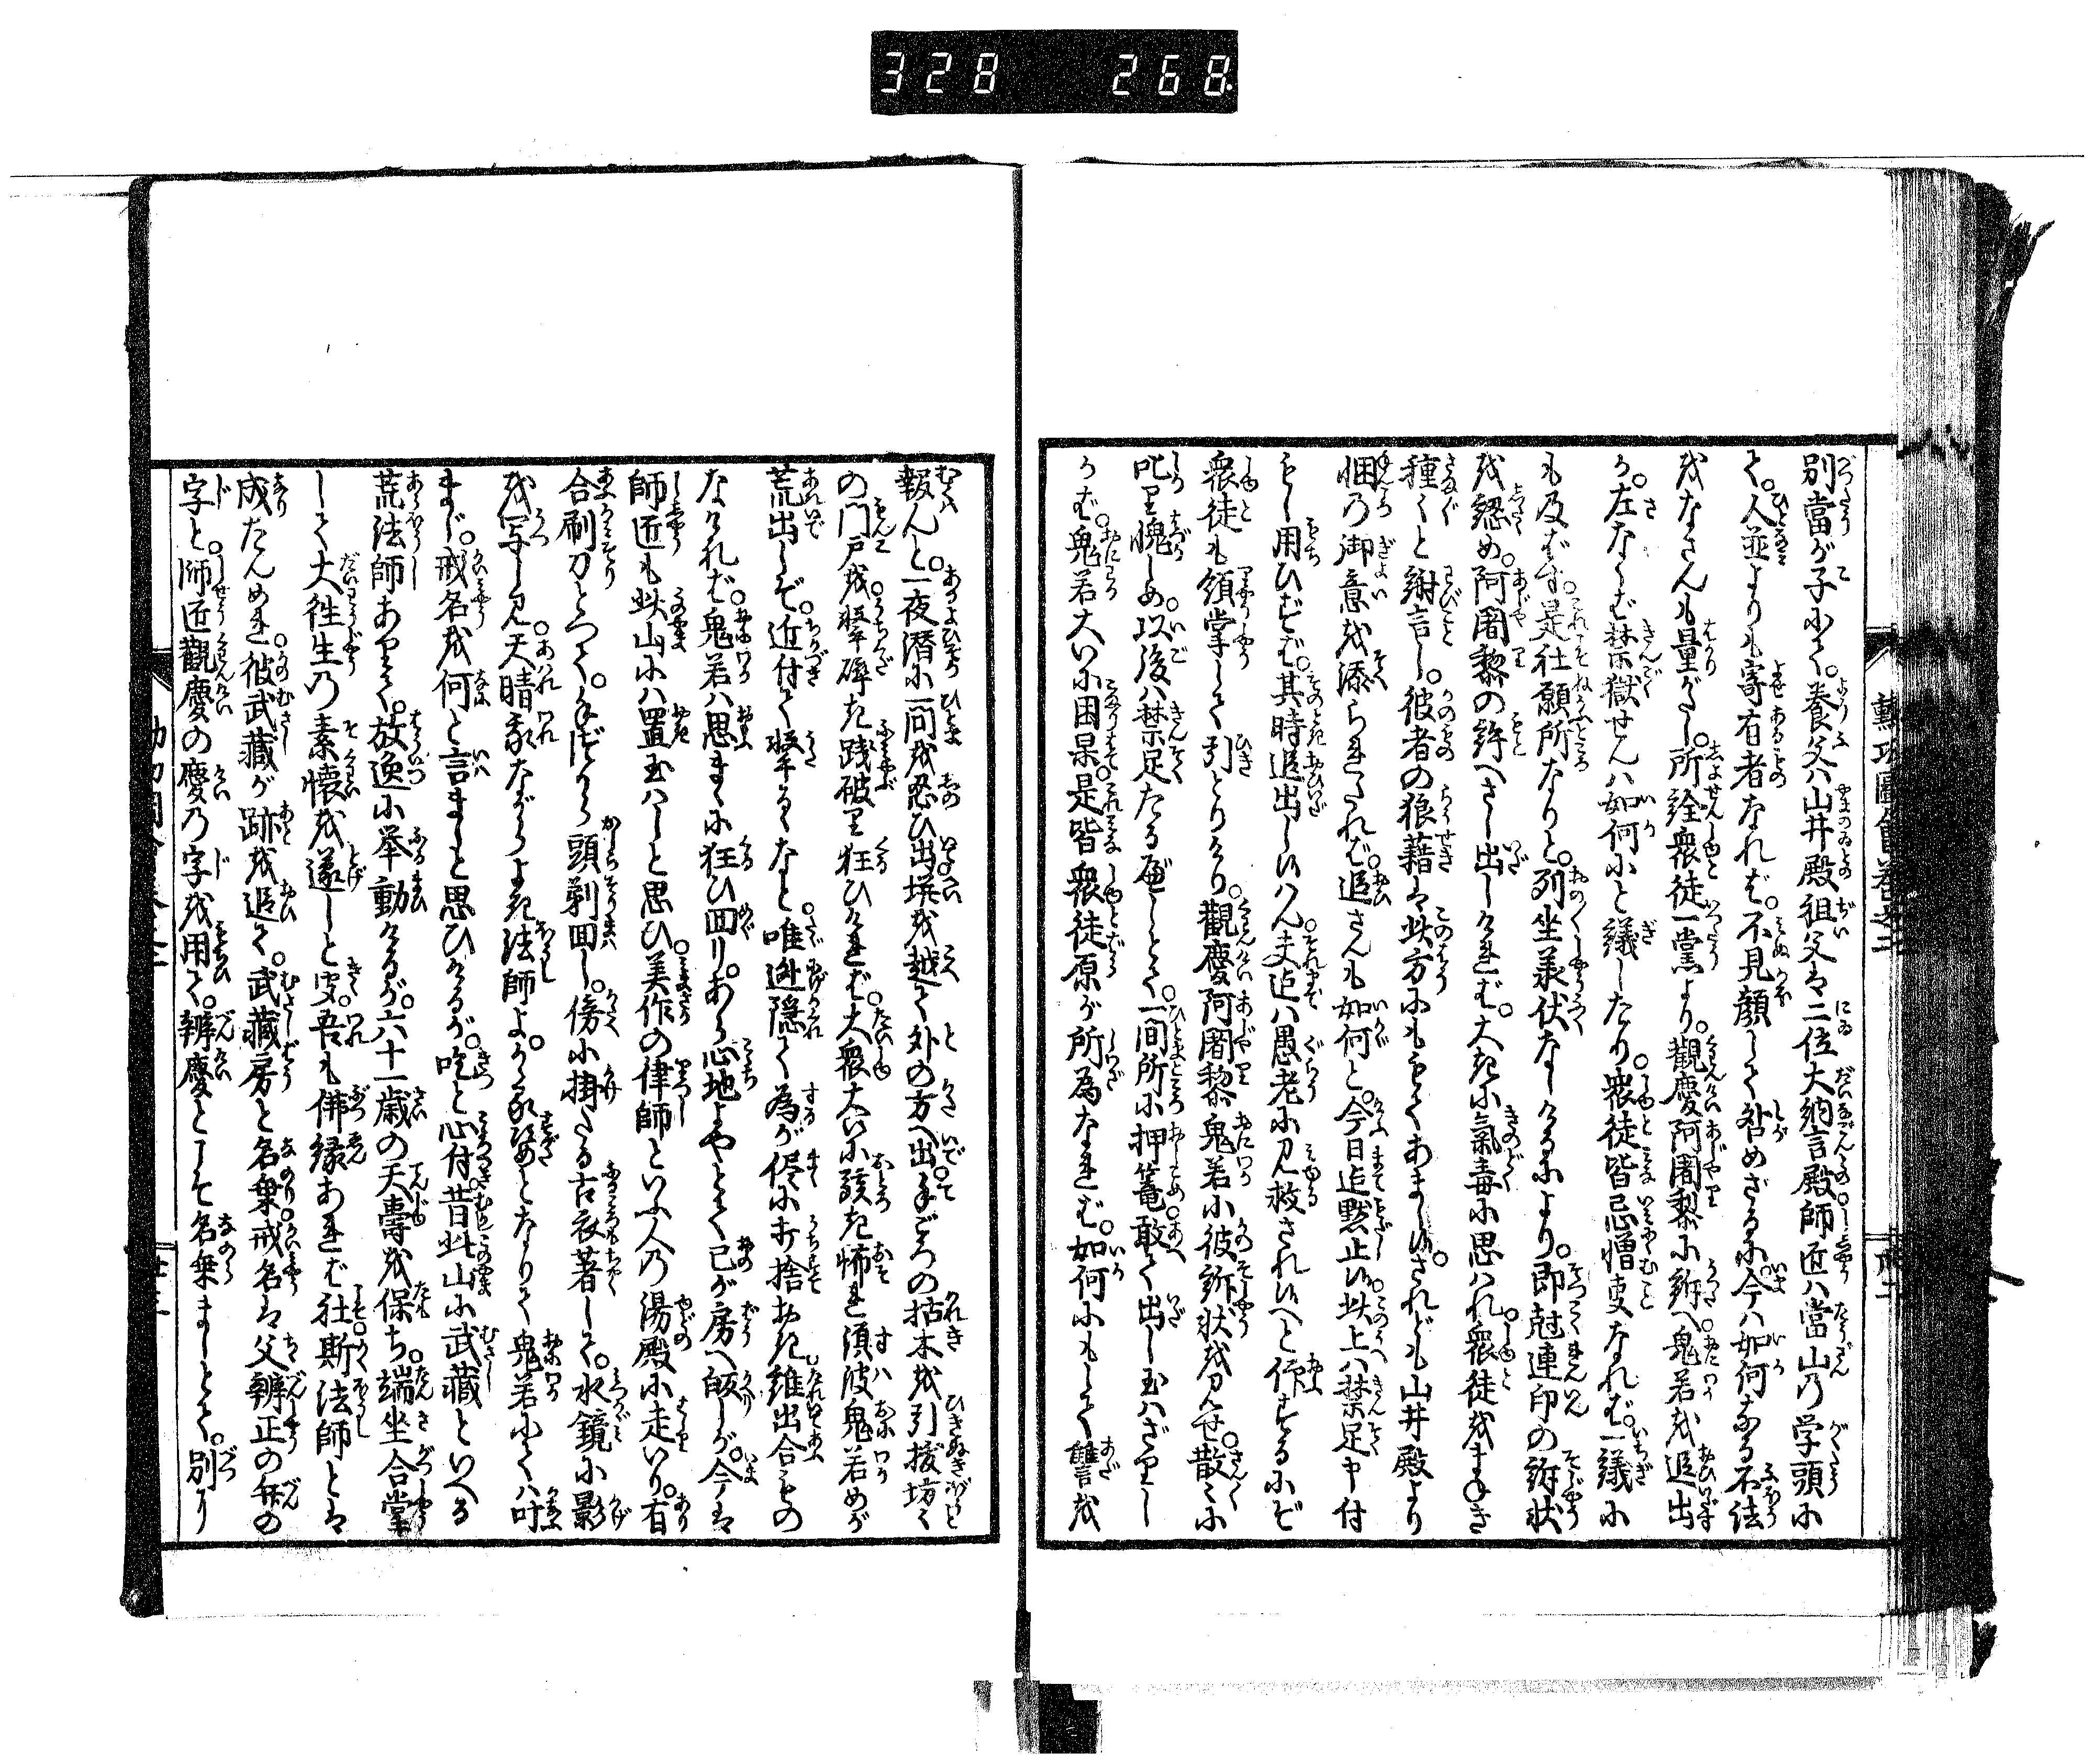 328 268
勲功圖會卷之二
別當が子にて。養父ハ山井殿祖父は二位大納言殿師匠ハ當山乃学頭に
て。人並よりも寄有者なれば。不見顔して咎めざるに今ハ如何なる不法
をなさんも量がたし。所詮衆徒一黨より。觀慶阿闍黎に訴へ鬼若を追出
か。左なくば禁獄せんハ如何にと議したり。衆徒皆忌憎事なれば。一議に
も及ばず。是社願所なりと。列坐兼伏なしけるにより。即尅連印の訴状
を認め。阿闍黎の許へさし出しければ。大きに氣毒に思ハれ衆徒をまねき
種々と謝言し。彼者の狼藉は此方にももてあまし候。されども山井殿より
悃乃御意を添られたれば。追さんも如何と。今日迄黙止候。此上ハ禁足申付
もし用ひずば。其時追出し候ハん。夫迄ハ愚老に見救され候へと仰するにぞ
衆徒も領掌して引とりけり。觀慶阿闍黎鬼若に彼訴状を見せ。散々に
叱り愧しめ。以後ハ禁足たる べしとて。一間所に押篭敢て出し玉ハざりし
かば。鬼若大いに困果是皆衆徒原が所為なれば。如何にもして讐を
報んと。一夜潜に一間を忍び出塀を越て外の方へ出。手ごろの枯木を引拔坊々
の門戸を擊碎き踐破り狂ひければ。大衆大いに駭き怖れ須波鬼若めが
荒出しぞ。近付て擊るゝなと。唯迯隠て為が侭に打捨おき誰出合もの
なければ。鬼若ハ思まゝに狂ひ回り。あら心地よやとて己が房へ皈しが。今は
師匠も此山にハ置玉ハじと思ひ。美作の律師といふ人乃湯殿に走いり。有
合刷刀とつて。手ばやく頭剃回し。傍に掛たる古衣著して。水鏡に影
を写し見天晴我ながらよき法師よ。かゝる姿となりて鬼若にてハ叶
まじ。戒名を何と言ましと思ひけるが。吃と心付昔此山に武藏といへる
荒法師ありて。放逸に举動けるが。六十一歳の天壽を保ち。端坐合掌
して大徃生乃素懐を遂しと聞。吾も佛縁あれば社斯法師とは
成たんめれ。彼武藏が跡を追て。武藏房と名乗戒名は父辨正の弁の
字と。師匠觀慶の慶乃字を用て。辨慶とこそ名乗ましとて。別り